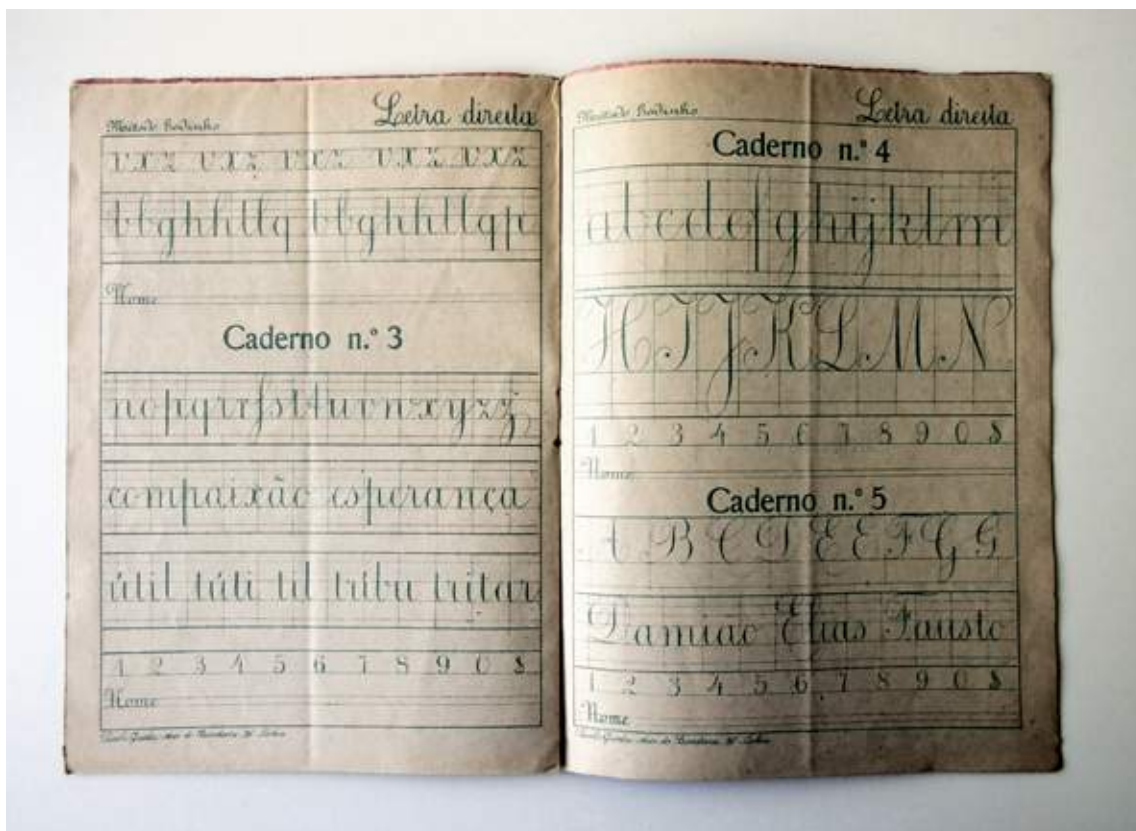 Letra direita
vxz vxz vxz vxz vxz
bbghhllq bbghhllqp
Nome
Caderno n.º 3
nopqrrſsttuvnxyzz
compaixão esperança
útil túti til tribu tritar
1 2 3 4 5 6 7 8 9 0 8
Nome
Letra direita
Caderno n.º 4
abcdefghijklm
H I J K L M N
1 2 3 4 5 6 7 8 9 0 8
Nome
Caderno n.º 5
A B C D E E F G G
Damião Elias Fausto
1 2 3 4 5 6 7 8 9 0 8
Nome